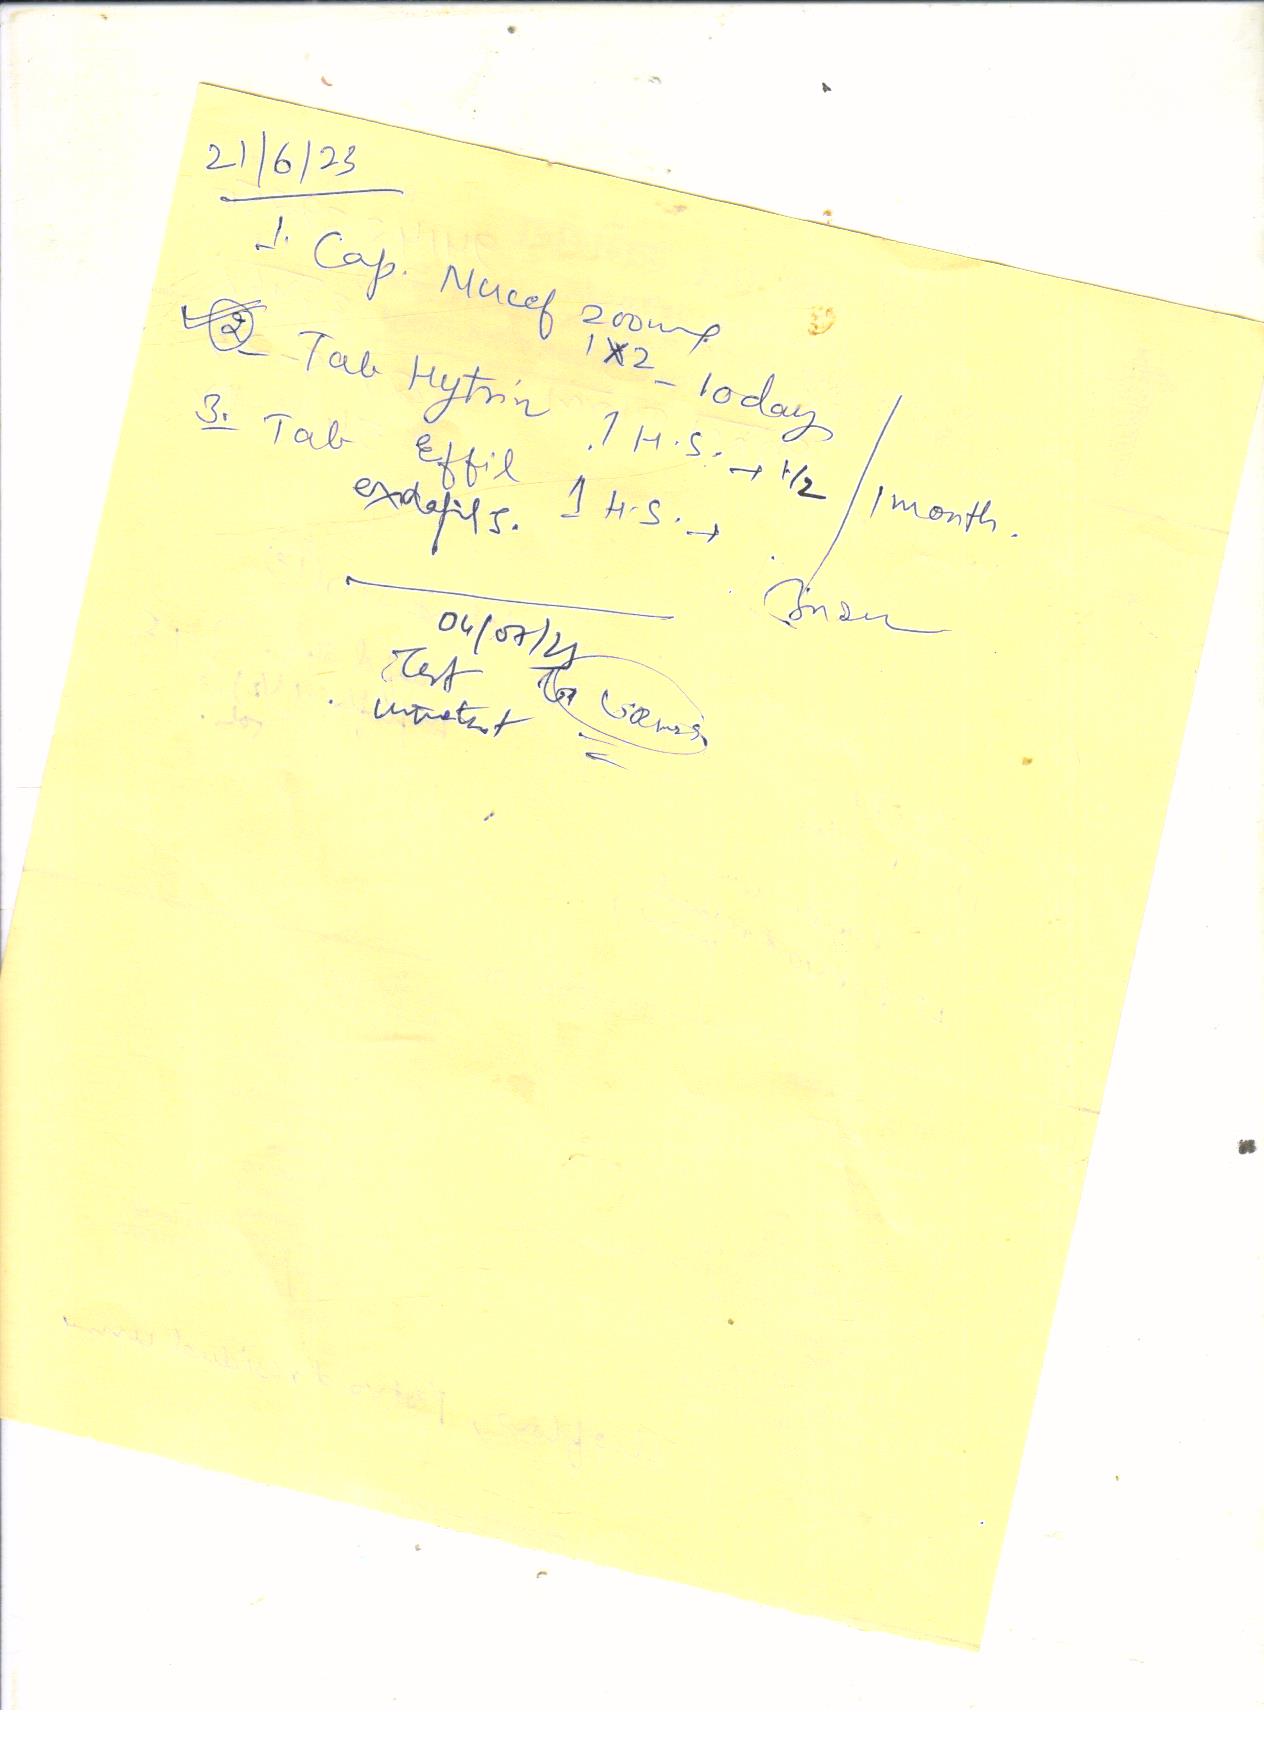 21/6/23
1. Cap. Mucef 200mg
1x2 - 10days
2 Tab Hytrin 1 H.S. → 1/2
3. Tab Effil 1 H.S. →
1 month.
exdafil 5.
04/07/23
Test